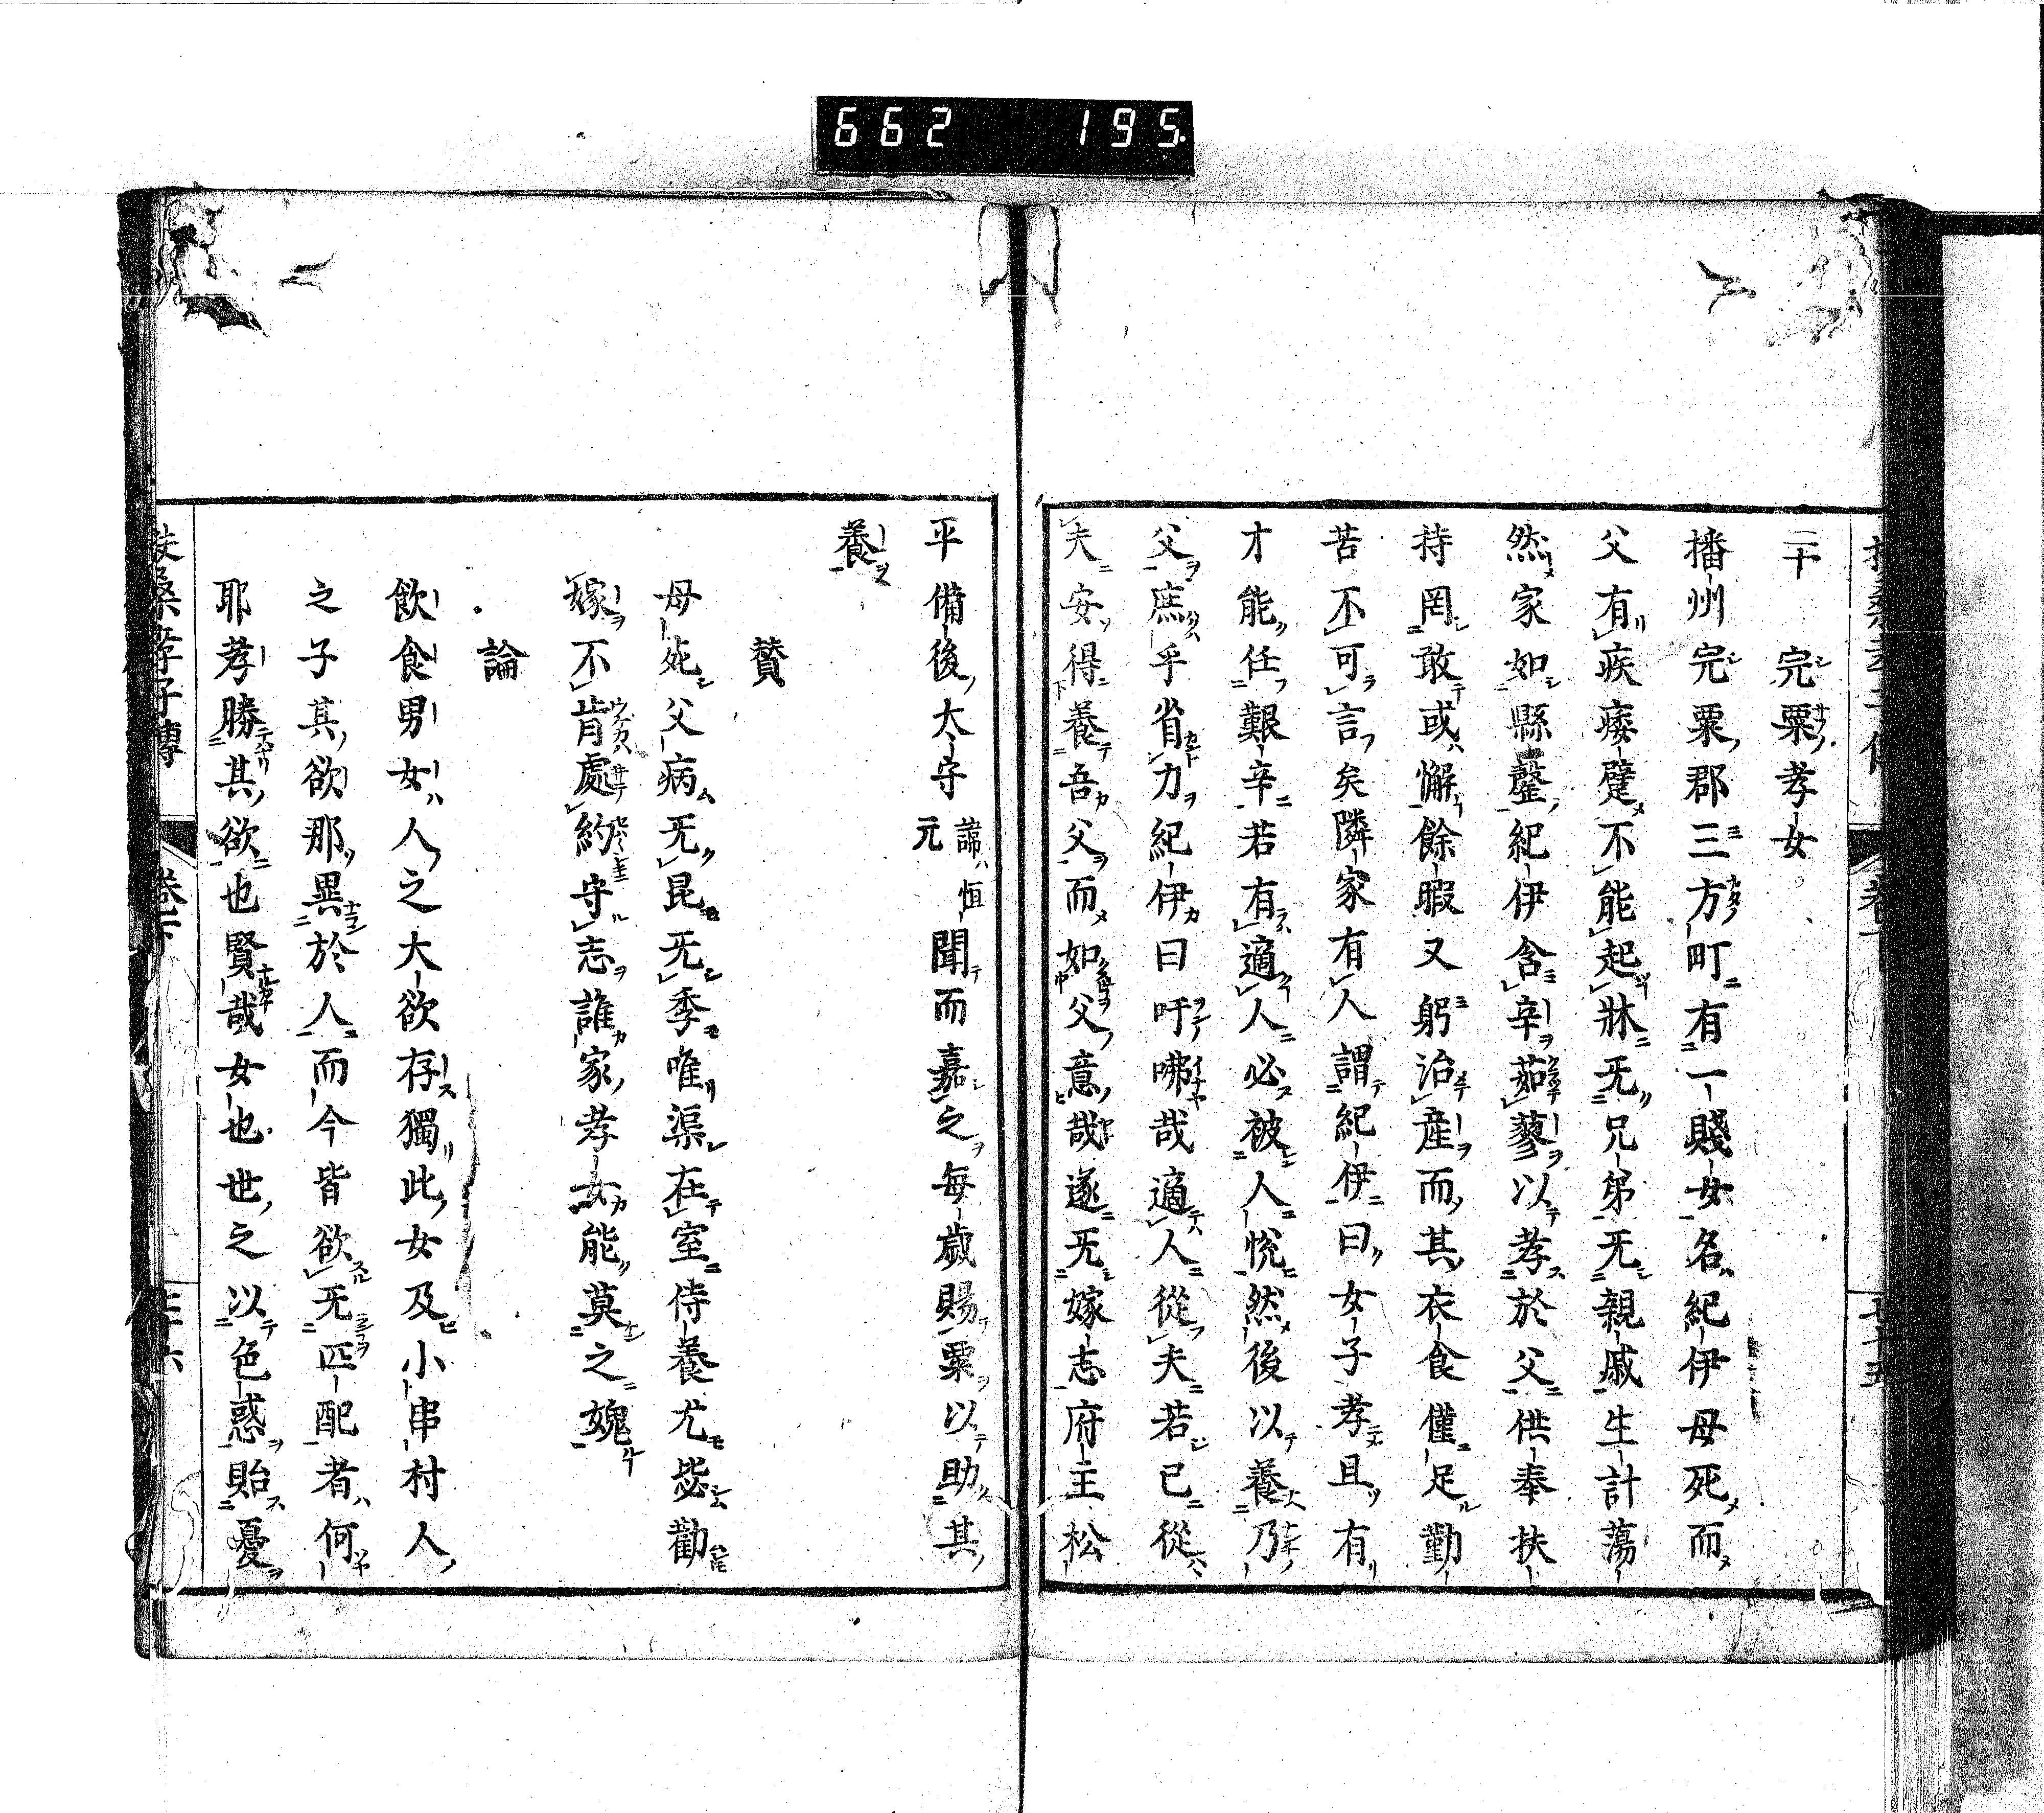 662 195.
二十 完粟孝女
播州完粟郡三方町有一賤女名紀伊母死而
父有疾痿躄不能起牀无兄弟无親戚生計蕩
然家如縣罄紀伊含辛茹蓼以孝於父供奉扶
持罔敢或懈餘暇又躬治産而其衣食僅足勤
苦不可言矣隣家有人謂紀伊曰女子孝且有
才能任艱辛若有適人必被人悅然後以養乃
父庶乎省力紀伊曰吁咈哉適人從夫若已從
夫安得養吾父而如父意哉遂无嫁志府主松
平備後太守諱恒元聞而嘉之每歲賜粟以助其
養
贊
母死父病无昆无季唯渠在室侍養尤毖勸
嫁不肯處約守志誰家孝女能莫之媿
論
飲食男女人之大欲存獨此女及小串村人
之子其欲那異於人而今皆欲无匹配者何
耶孝勝其欲也賢哉女也世之以色惑貽憂
扶桑孝子傳 卷下